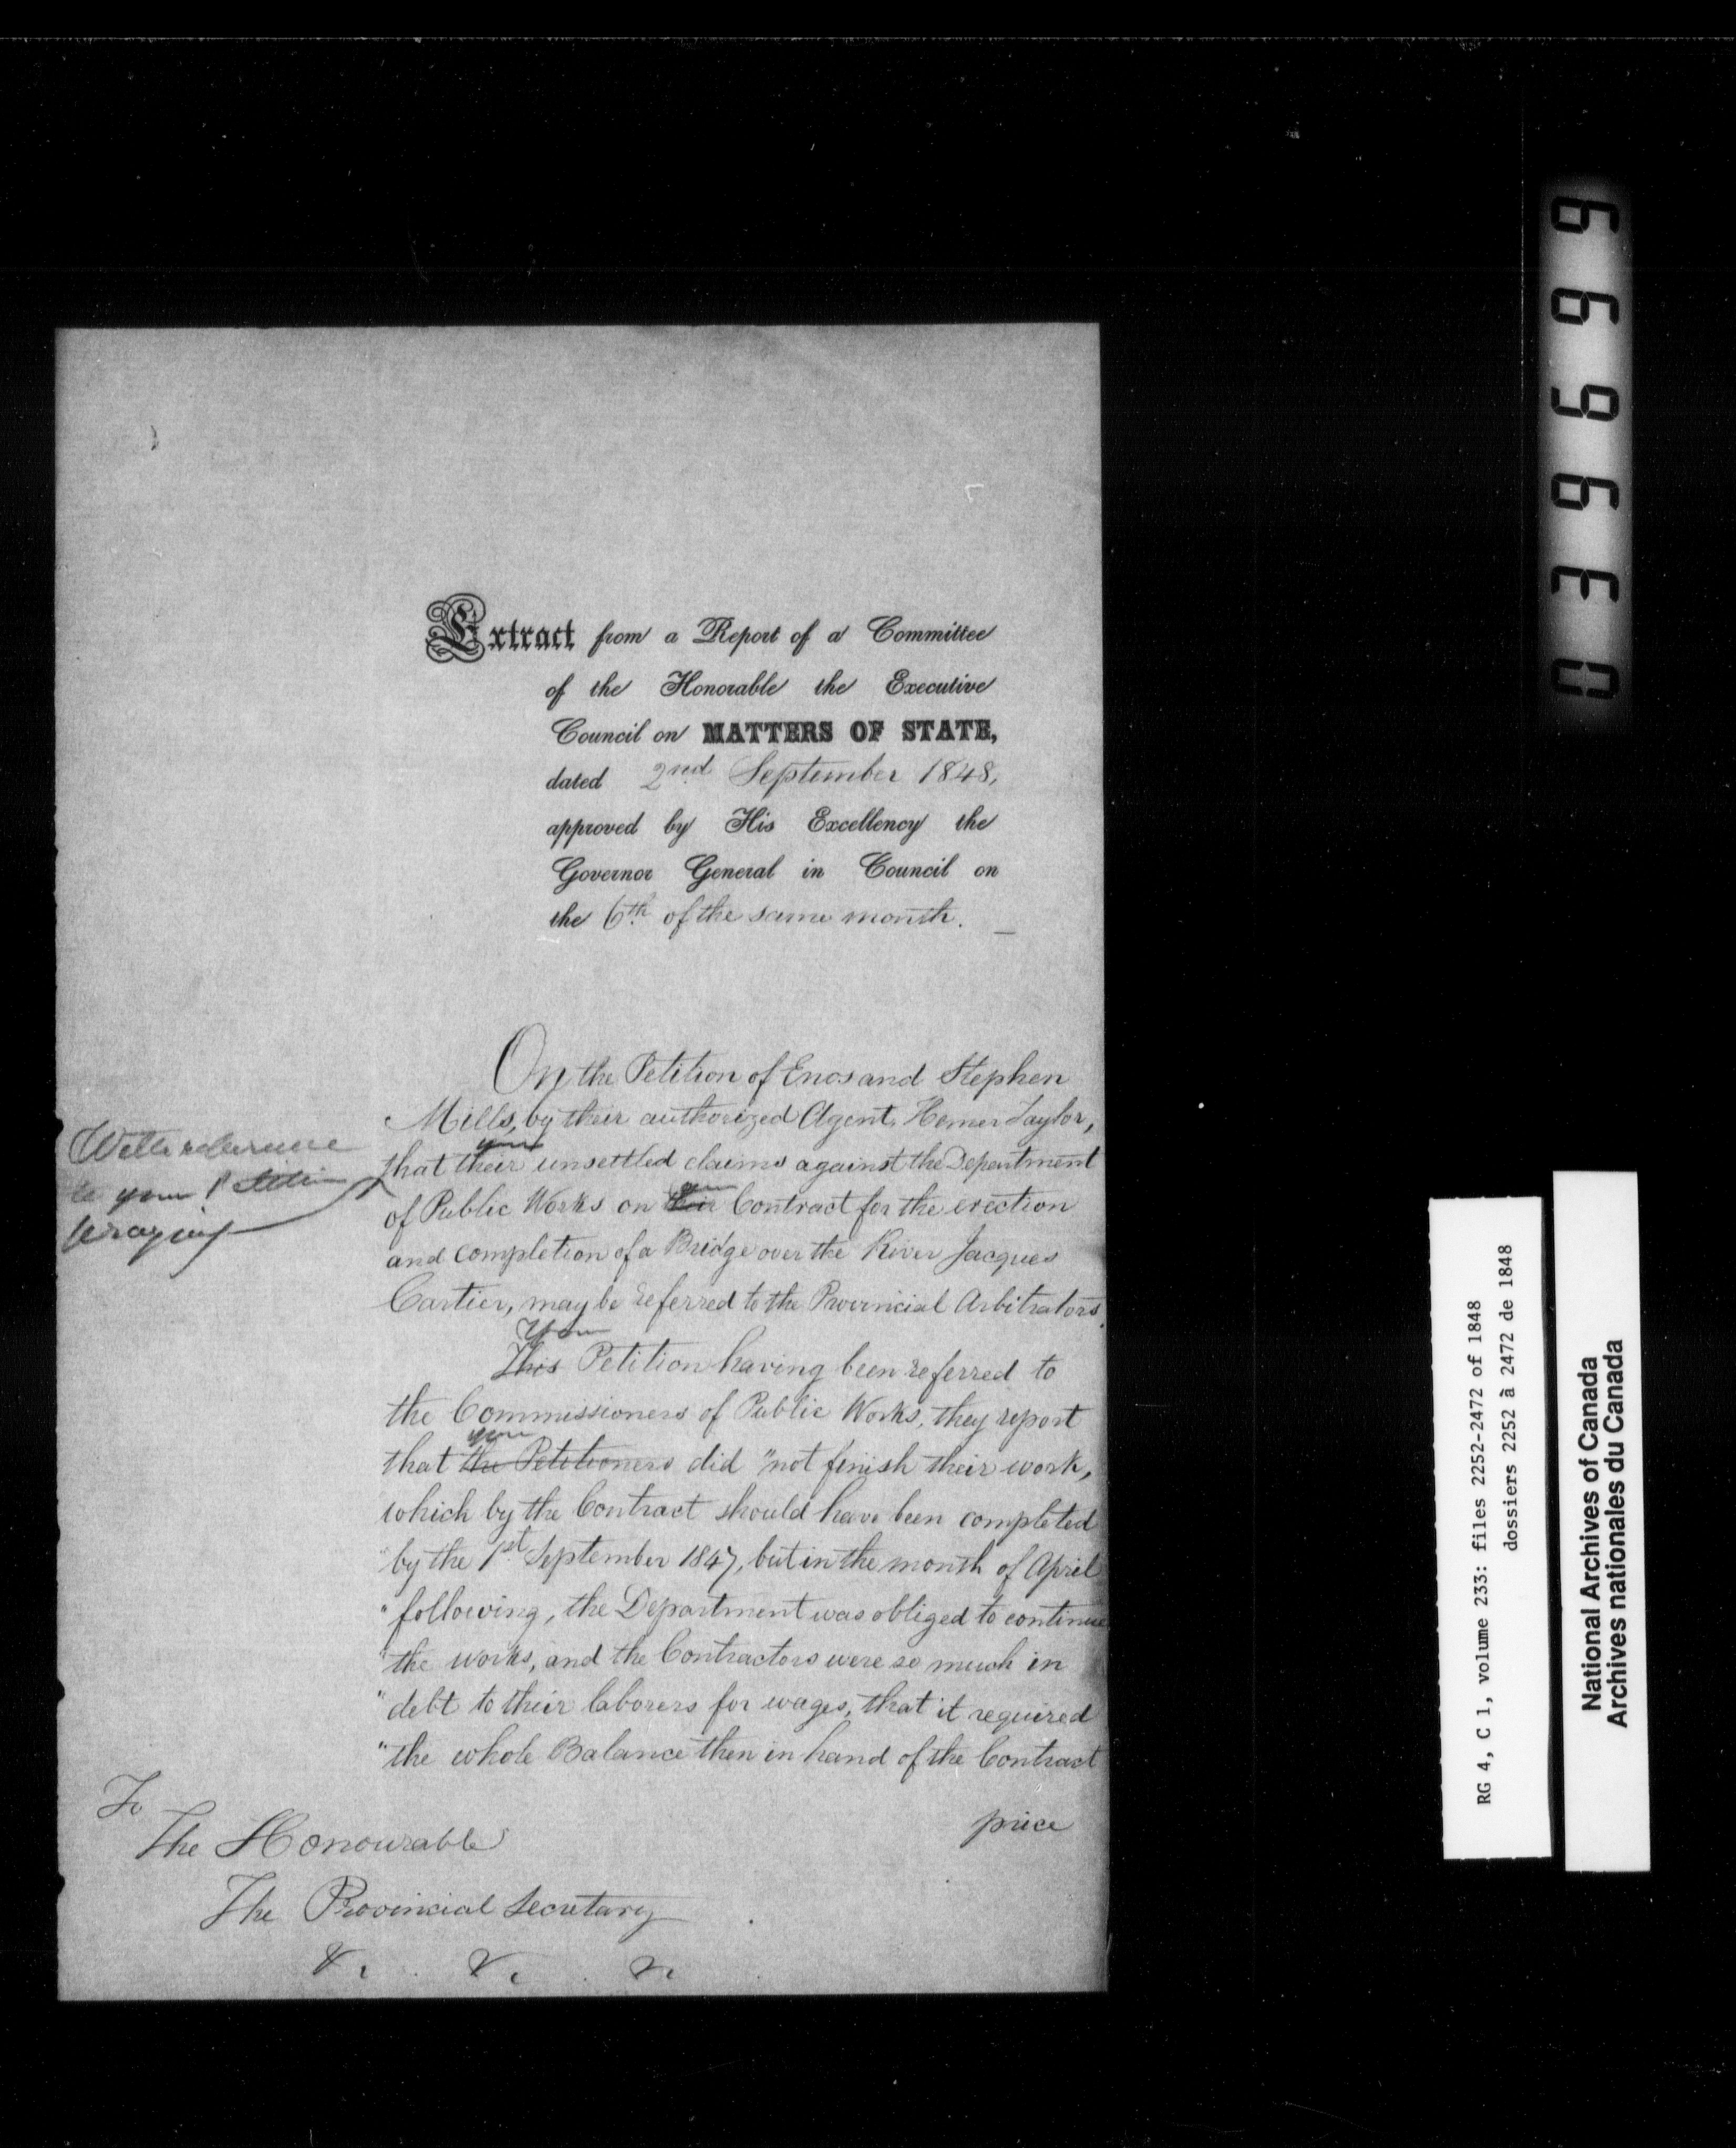 Extract from a Report of a Committee
of the Honorable the Executive
Council on MATTERS OF STATE,
dated 2nd September 1848,
approved by His Excellency the
Governor General in Council on
the 6th of the same month.
On the Petition of Enos and Stephen
Mills, by their authorized Agent, Homer Taylor,
With reference
to your Petition
praying
your
that their unsettled claims against the Department
your
of Public Works on their Contract for the erection
and completion of a Bridge over the River Jacques
Cartier, may be referred to the Provincial Arbitrators.
Your
This Petition having been referred to
the Commissioners of Public Works, they report
you
that the Petitioners did "not finish their work,
which by the Contract should have been completed
"by the 1st September 1847, but in the month of April
"following, the Department was obliged to continue
"the works, and the Contractors were so much in
"debt to their laborers for wages, that it required
"the whole Balance then in hand of the Contract
price
To
The Honourable
The Provincial Secretary
&c. &c. &c.
039699
RG 4, C 1, volume 233: files 2252-2472 of 1848
dossiers 2252 à 2472 de 1848
National Archives of Canada
Archives nationales du Canada